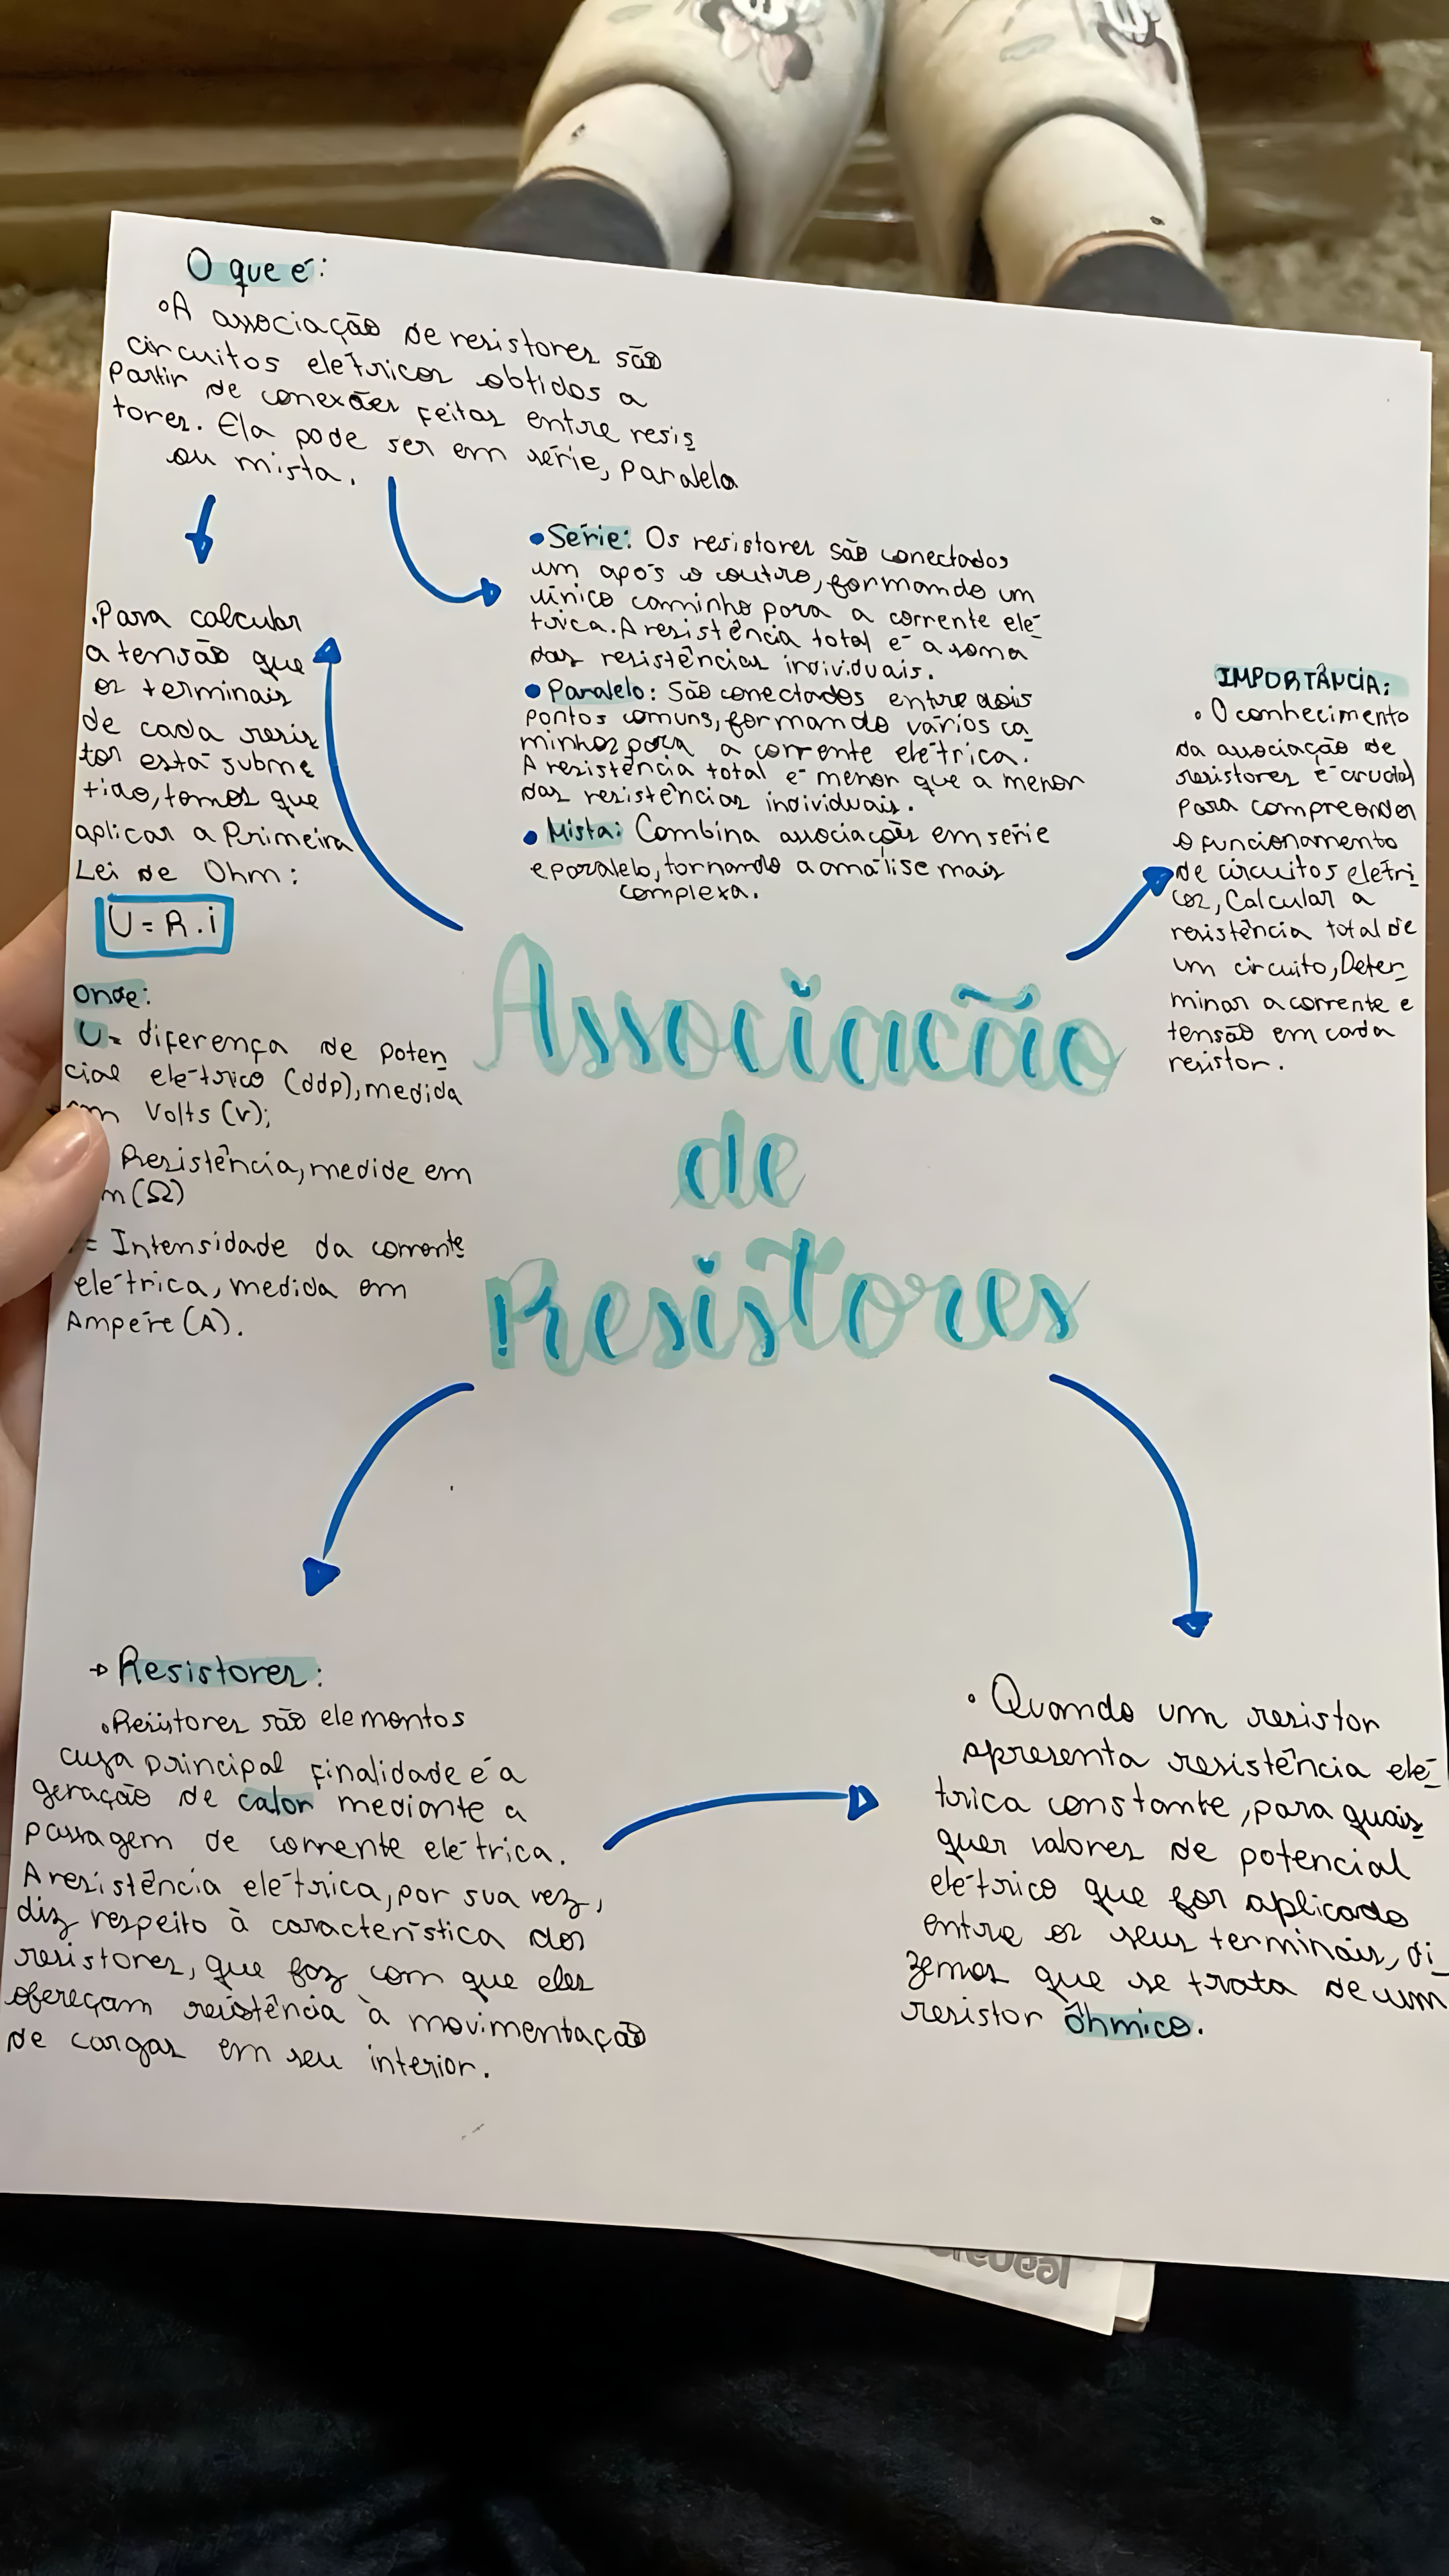 O que é:
• A associação de resistores são
circuitos elétricos obtidos a
partir de conexões feitas entre resis
tores. Ela pode ser em série, paralela
ou mista.
• Série: Os resistores são conectados
um após o outro, formando um
único caminho para a corrente elé-
trica. A resistência total é a soma
das resistências individuais.
• Paralelo: São conectados entre dois
pontos comuns, formando vários ca
minhos para a corrente elétrica.
A resistência total é menor que a menor
das resistências individuais.
• Mista: Combina associações em série
e paralelo, tornando a análise mais
complexa.
.Para calcular
a tensão que
os terminais
de cada resis
tor está subme
tido, temos que
aplicar a Primeira
Lei de Ohm:
U = R . i
Onde:
U = diferença de poten
cial elétrico (ddp), medida
em Volts (v);
Resistência, medide em
m (Ω)
= Intensidade da corrente
elétrica, medida em
Ampére (A).
IMPORTÂNCIA:
• O conhecimento
da associação de
resistores é crucial
para compreender
o funcionamento
de circuitos elétri-
cos, Calcular a
resistência total de
um circuito, Deter-
minar a corrente e
tensão em cada
resistor.
Associação
de
Resistores
→ Resistores:
• Resistores são elementos
cuja principal finalidade é a
geração de calor mediante a
passagem de corrente elétrica.
A resistência elétrica, por sua vez,
diz respeito à característica dos
resistores, que faz com que eles
ofereçam resistência à movimentação
de cargas em seu interior.
• Quando um resistor
apresenta resistência elé-
trica constante, para quais
quer valores de potencial
elétrico que for aplicado
entre os seus terminais, di_
zemos que se trata de um
resistor ôhmico.